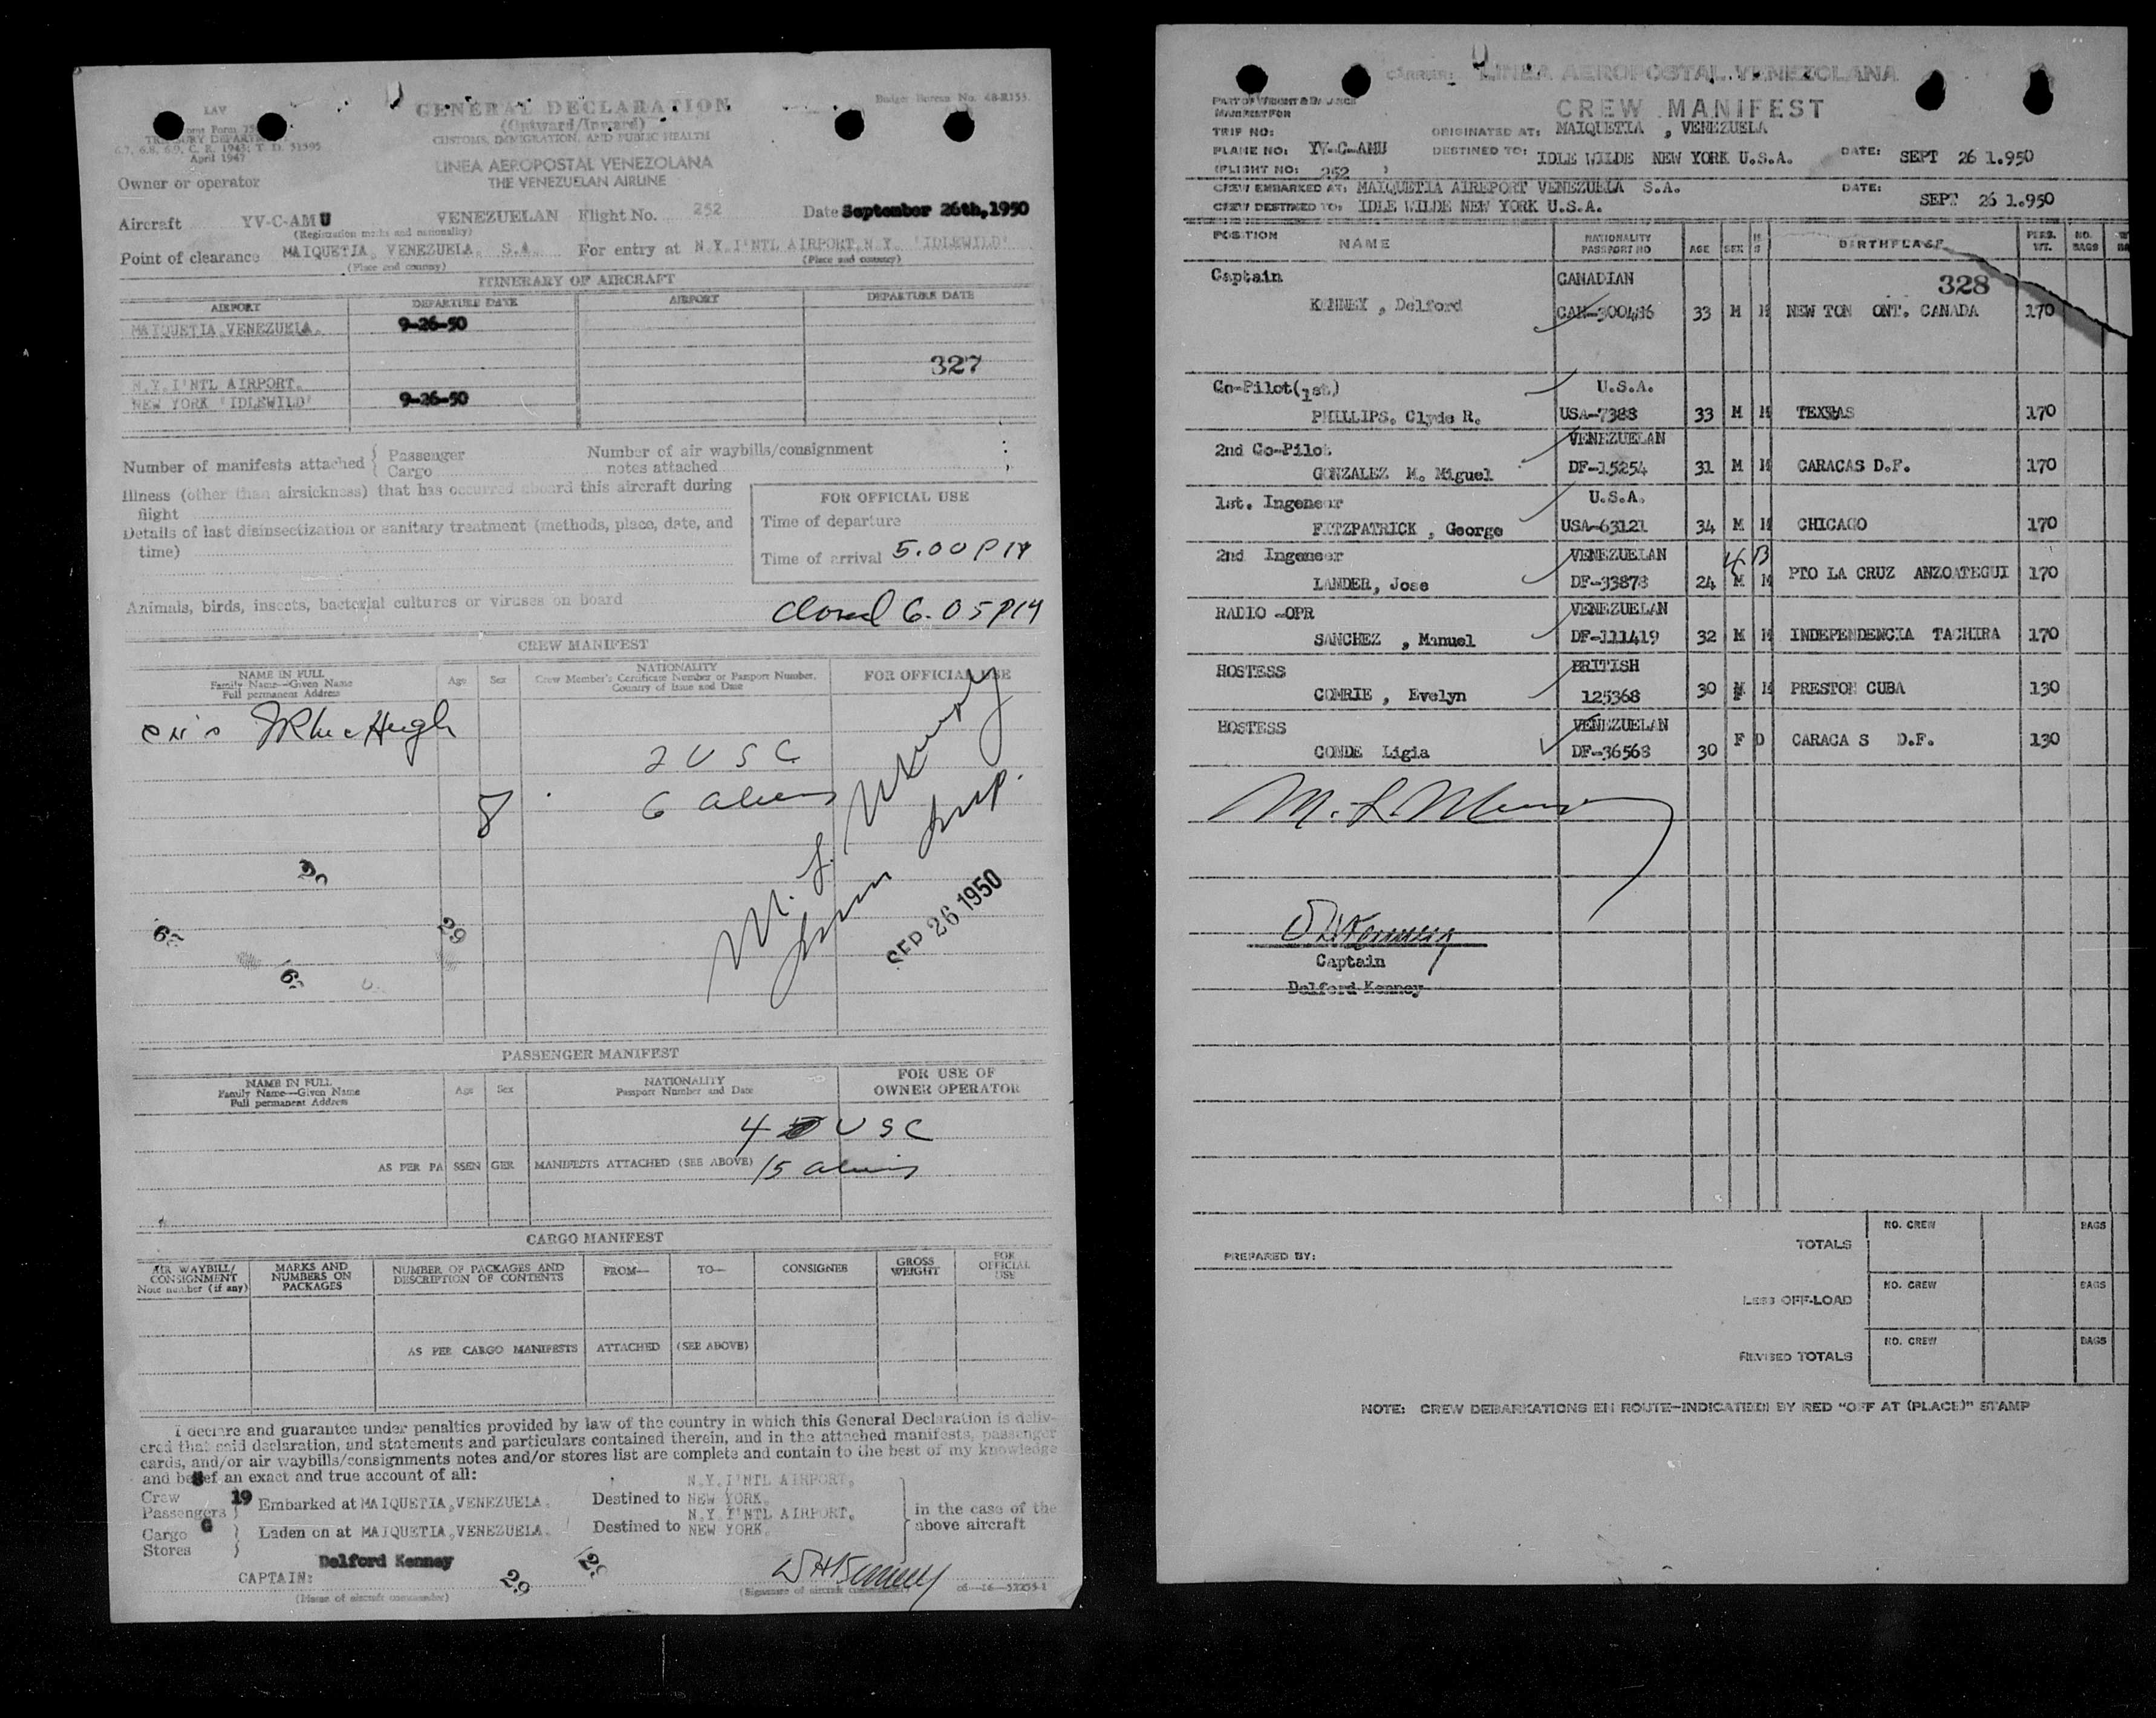 LAV
GENERAL DECLARATION
(Outward/Inward)
CUSTOMS, IMMIGRATION, AND PUBLIC HEALTH
Budget Bureau No. 48-R155.
TREASURY DEPART
6.7, 6.8, 6.9, C. R. 1943; T. D. 51595
April 1947
LINEA AEROPOSTAL VENEZOLANA
THE VENEZUELAN AIRLINE
Owner or operator
Aircraft YV-C-AMU VENEZUELAN Flight No. 252 Date September 26th, 1950
(Registration marks and nationality)
Point of clearance MAIQUETIA, VENEZUELA, S.A. For entry at N.Y. I'NTL AIRPORT, N.Y. 'IDLEWILD'
(Place and country) (Place and country)
ITINERARY OF AIRCRAFT
AIRPORT DEPARTURE DATE AIRPORT DEPARTURE DATE
MAIQUETIA VENEZUELA. 9-26-50
327
N.Y. I'NTL AIRPORT.
NEW YORK 'IDLEWILD' 9-26-50
Number of manifests attached { Passenger
Cargo
Number of air waybills/consignment
notes attached
Illness (other than airsickness) that has occurred aboard this aircraft during
flight
Details of last disinsectization or sanitary treatment (methods, place, date, and
time)
FOR OFFICIAL USE
Time of departure
Time of arrival 5.00 PM
Animals, birds, insects, bacterial cultures or viruses on board
Closed 6.05 PM
CREW MANIFEST
NAME IN FULL
Family Name—Given Name
Full permanent Address
Age Sex
NATIONALITY
Crew Member's Certificate Number or Passport Number,
Country of Issue and Date
FOR OFFICIAL USE
2 USC
8 6 aliens
SEP 26 1950
29
PASSENGER MANIFEST
NAME IN FULL
Family Name—Given Name
Full permanent Address
Age Sex
NATIONALITY
Passport Number and Date
FOR USE OF
OWNER OPERATOR
4 USC
AS PER PA SSEN GER MANIFESTS ATTACHED (SEE ABOVE) 15 aliens
CARGO MANIFEST
AIR WAYBILL/
CONSIGNMENT
Note number (if any)
MARKS AND
NUMBERS ON
PACKAGES
NUMBER OF PACKAGES AND
DESCRIPTION OF CONTENTS
FROM—
TO—
CONSIGNEE
GROSS
WEIGHT
FOR
OFFICIAL
USE
AS PER CARGO MANIFESTS ATTACHED (SEE ABOVE)
I declare and guarantee under penalties provided by law of the country in which this General Declaration is deliv-
ered that said declaration, and statements and particulars contained therein, and in the attached manifests, passenger
cards, and/or air waybills/consignments notes and/or stores list are complete and contain to the best of my knowledge
and belief an exact and true account of all:
Crew
Passengers } 19 Embarked at MAIQUETIA, VENEZUELA. Destined to N.Y. I'NTL AIRPORT, NEW YORK.
Cargo
Stores } Laden on at MAIQUETIA, VENEZUELA. Destined to N.Y. I'NTL AIRPORT, NEW YORK.
in the case of the
above aircraft
Delford Kenney
CAPTAIN:
(Name of aircraft commander)
(Signature of aircraft commander)
29
CARRIER: LINEA AEROPOSTAL VENEZOLANA
CREW MANIFEST
PART OF WEIGHT & BALANCE
MANIFEST FOR
TRIP NO: ORIGINATED AT: MAIQUETIA , VENEZUELA
PLANE NO: YV-C-AMU DESTINED TO: IDLE WILDE NEW YORK U.S.A. DATE: SEPT 26 1.950
(FLIGHT NO: 252 )
CREW EMBARKED AT: MAIQUETIA AIREPORT VENEZUELA S.A. DATE:
CREW DESTINED TO: IDLE WILDE NEW YORK U.S.A. SEPT 26 1.950
POSITION NAME NATIONALITY PASSPORT NO AGE SEX M S BIRTHPLACE PERS. WT. NO. BAGS
328
Captain CANADIAN
KENNEY , Delford CAN-300486 33 M M NEW TON ONT. CANADA 170
Co-Pilot(1st.) U.S.A.
PHILLIPS, Clyde R. USA-7388 33 M M TEXAS 170
2nd Co-Pilot VENEZUELAN
GONZALEZ M. Miguel DF-15254 31 M M CARACAS D.F. 170
1st. Ingeneer U.S.A.
FITZPATRICK , George USA-63121 34 M M CHICAGO 170
2nd Ingeneer VENEZUELAN
LANDER, Jose DF-33878 24 M M PTO LA CRUZ ANZOATEGUI 170
RADIO -OPR VENEZUELAN
SANCHEZ , Manuel DF-111419 32 M M INDEPENDENCIA TACHIRA 170
HOSTESS BRITISH
COMRIE , Evelyn 125368 30 F M PRESTON CUBA 130
HOSTESS VENEZUELAN
CONDE Ligia DF-36568 30 F D CARACA S D.F. 130
Captain
Delford Kenney
TOTALS NO. CREW BAGS
PREPARED BY:
LESS OFF-LOAD NO. CREW BAGS
REVISED TOTALS NO. CREW BAGS
NOTE: CREW DEBARKATIONS EN ROUTE-INDICATED BY RED "OFF AT (PLACE)" STAMP